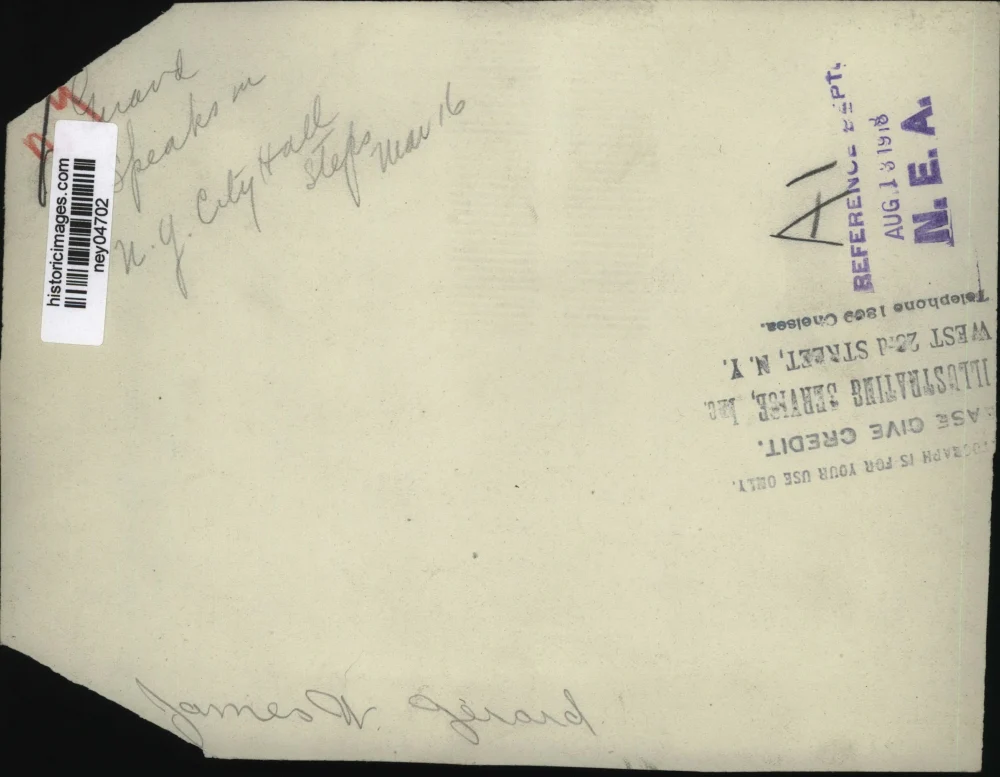 N Y
Gerard
Speaks on
N. Y. City Hall
Steps
Mar 16
historicimages.com
ney04702
A1
REFERENCE DEPT.
AUG. 13 1918
N. E. A.
OGRAPH IS FOR YOUR USE ONLY.
EASE GIVE CREDIT.
ILLUSTRATING SERVICE, Inc.
WEST 23rd STREET, N. Y.
Telephone 1869 Chelsea.
James W Gerard